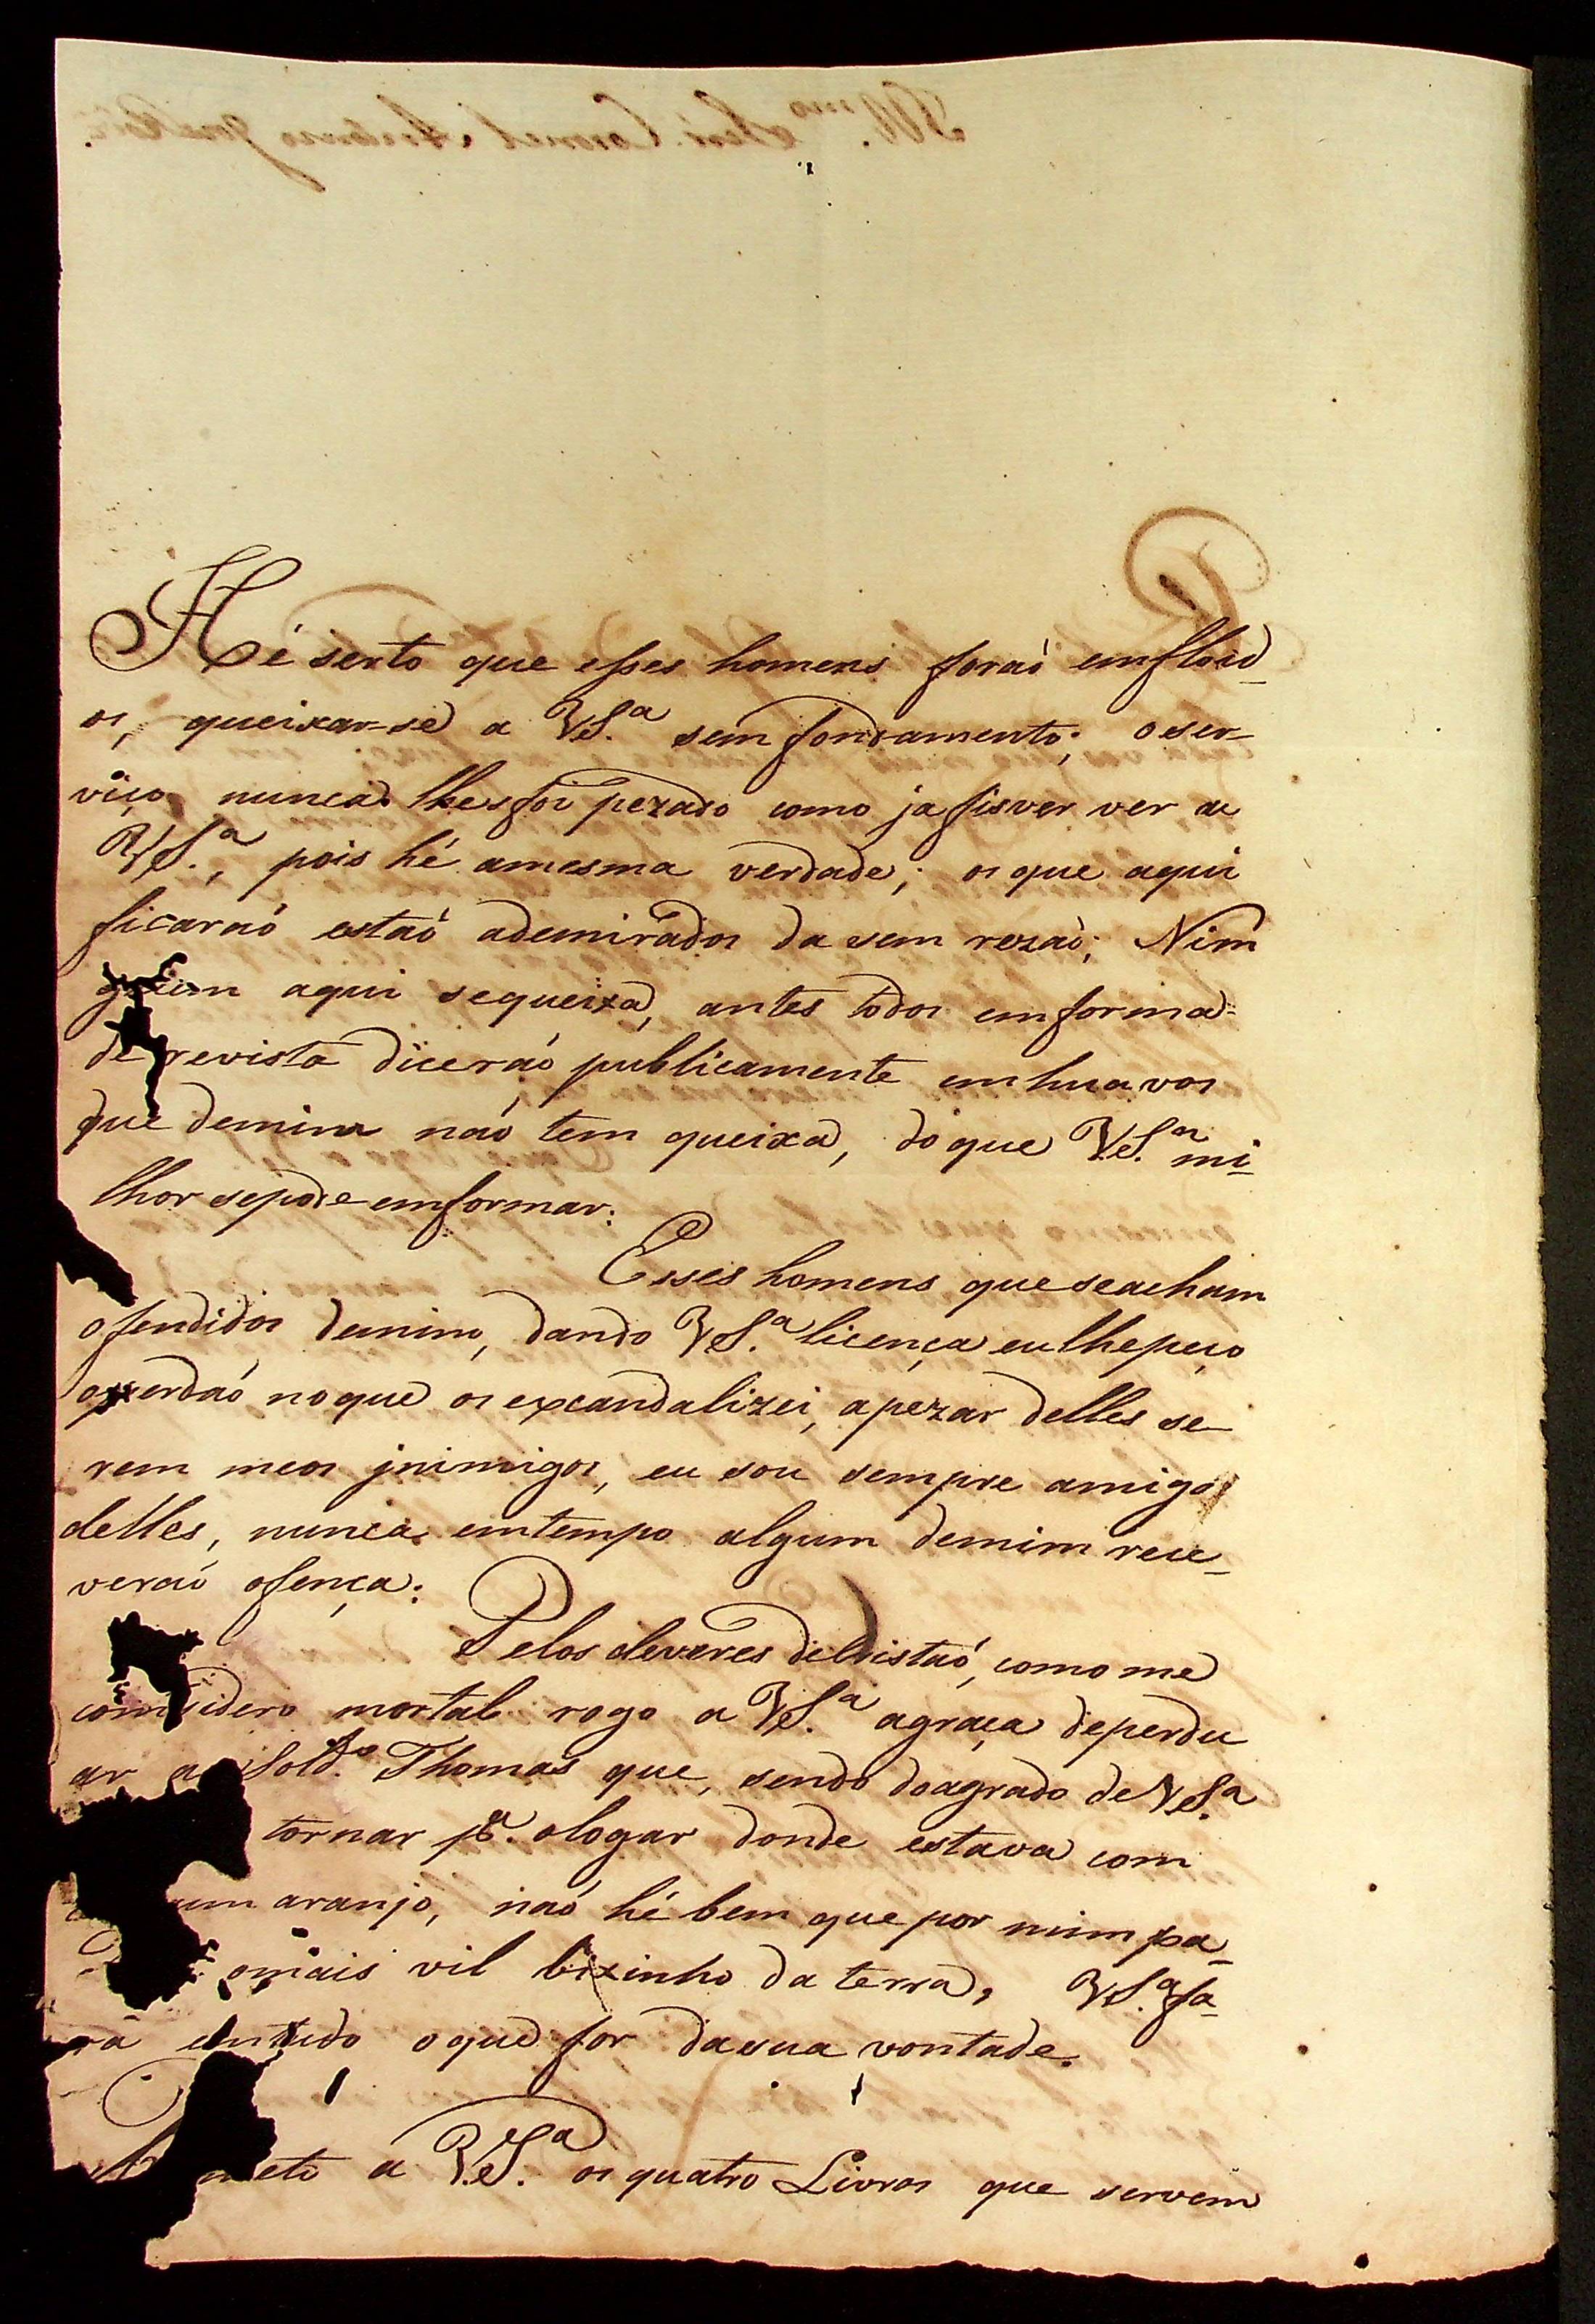 Hé serto que esses homens foraó emfloid_
os, queixar-se a VS.ª sem fondamento; o ser-
viço nunca lhes foi pezado como ja fisver ver a
VS.ª, pois hé amesma verdade; os que aqui
ficaraó estaó ademirados da sem rezaó; Nim
guem aqui sequeixa, antes todos emforma=
de revista diceraó publicamente em hua vos
que demim naó tem queixa, do que V.S.ª mi_
lhor sepode emformar:
Esses homens que seacham
ofendidos demim, dando VS.ª licença eu lhe peço
operdaó no que os excandalizei, apezar delles se_
rem meos jnimigos, eu sou sempre amigo
delles, nunca emtempo algum demim rece_
veraó ofença:
Pelos deveres de como me
comsidero mortal rogo a VS.ª agraça deperdu
ar ao Sold.º Thomas que, sendo doagrado de VS.ª
tornar pª. ologar donde estava com
um aranjo, naó hé bem que por mim pa_
omais vil bixinho da terra, VS.ª fa_
rá emtudo oque for dasua vontade.
meto a V.S.ª os quatro Livros que servem